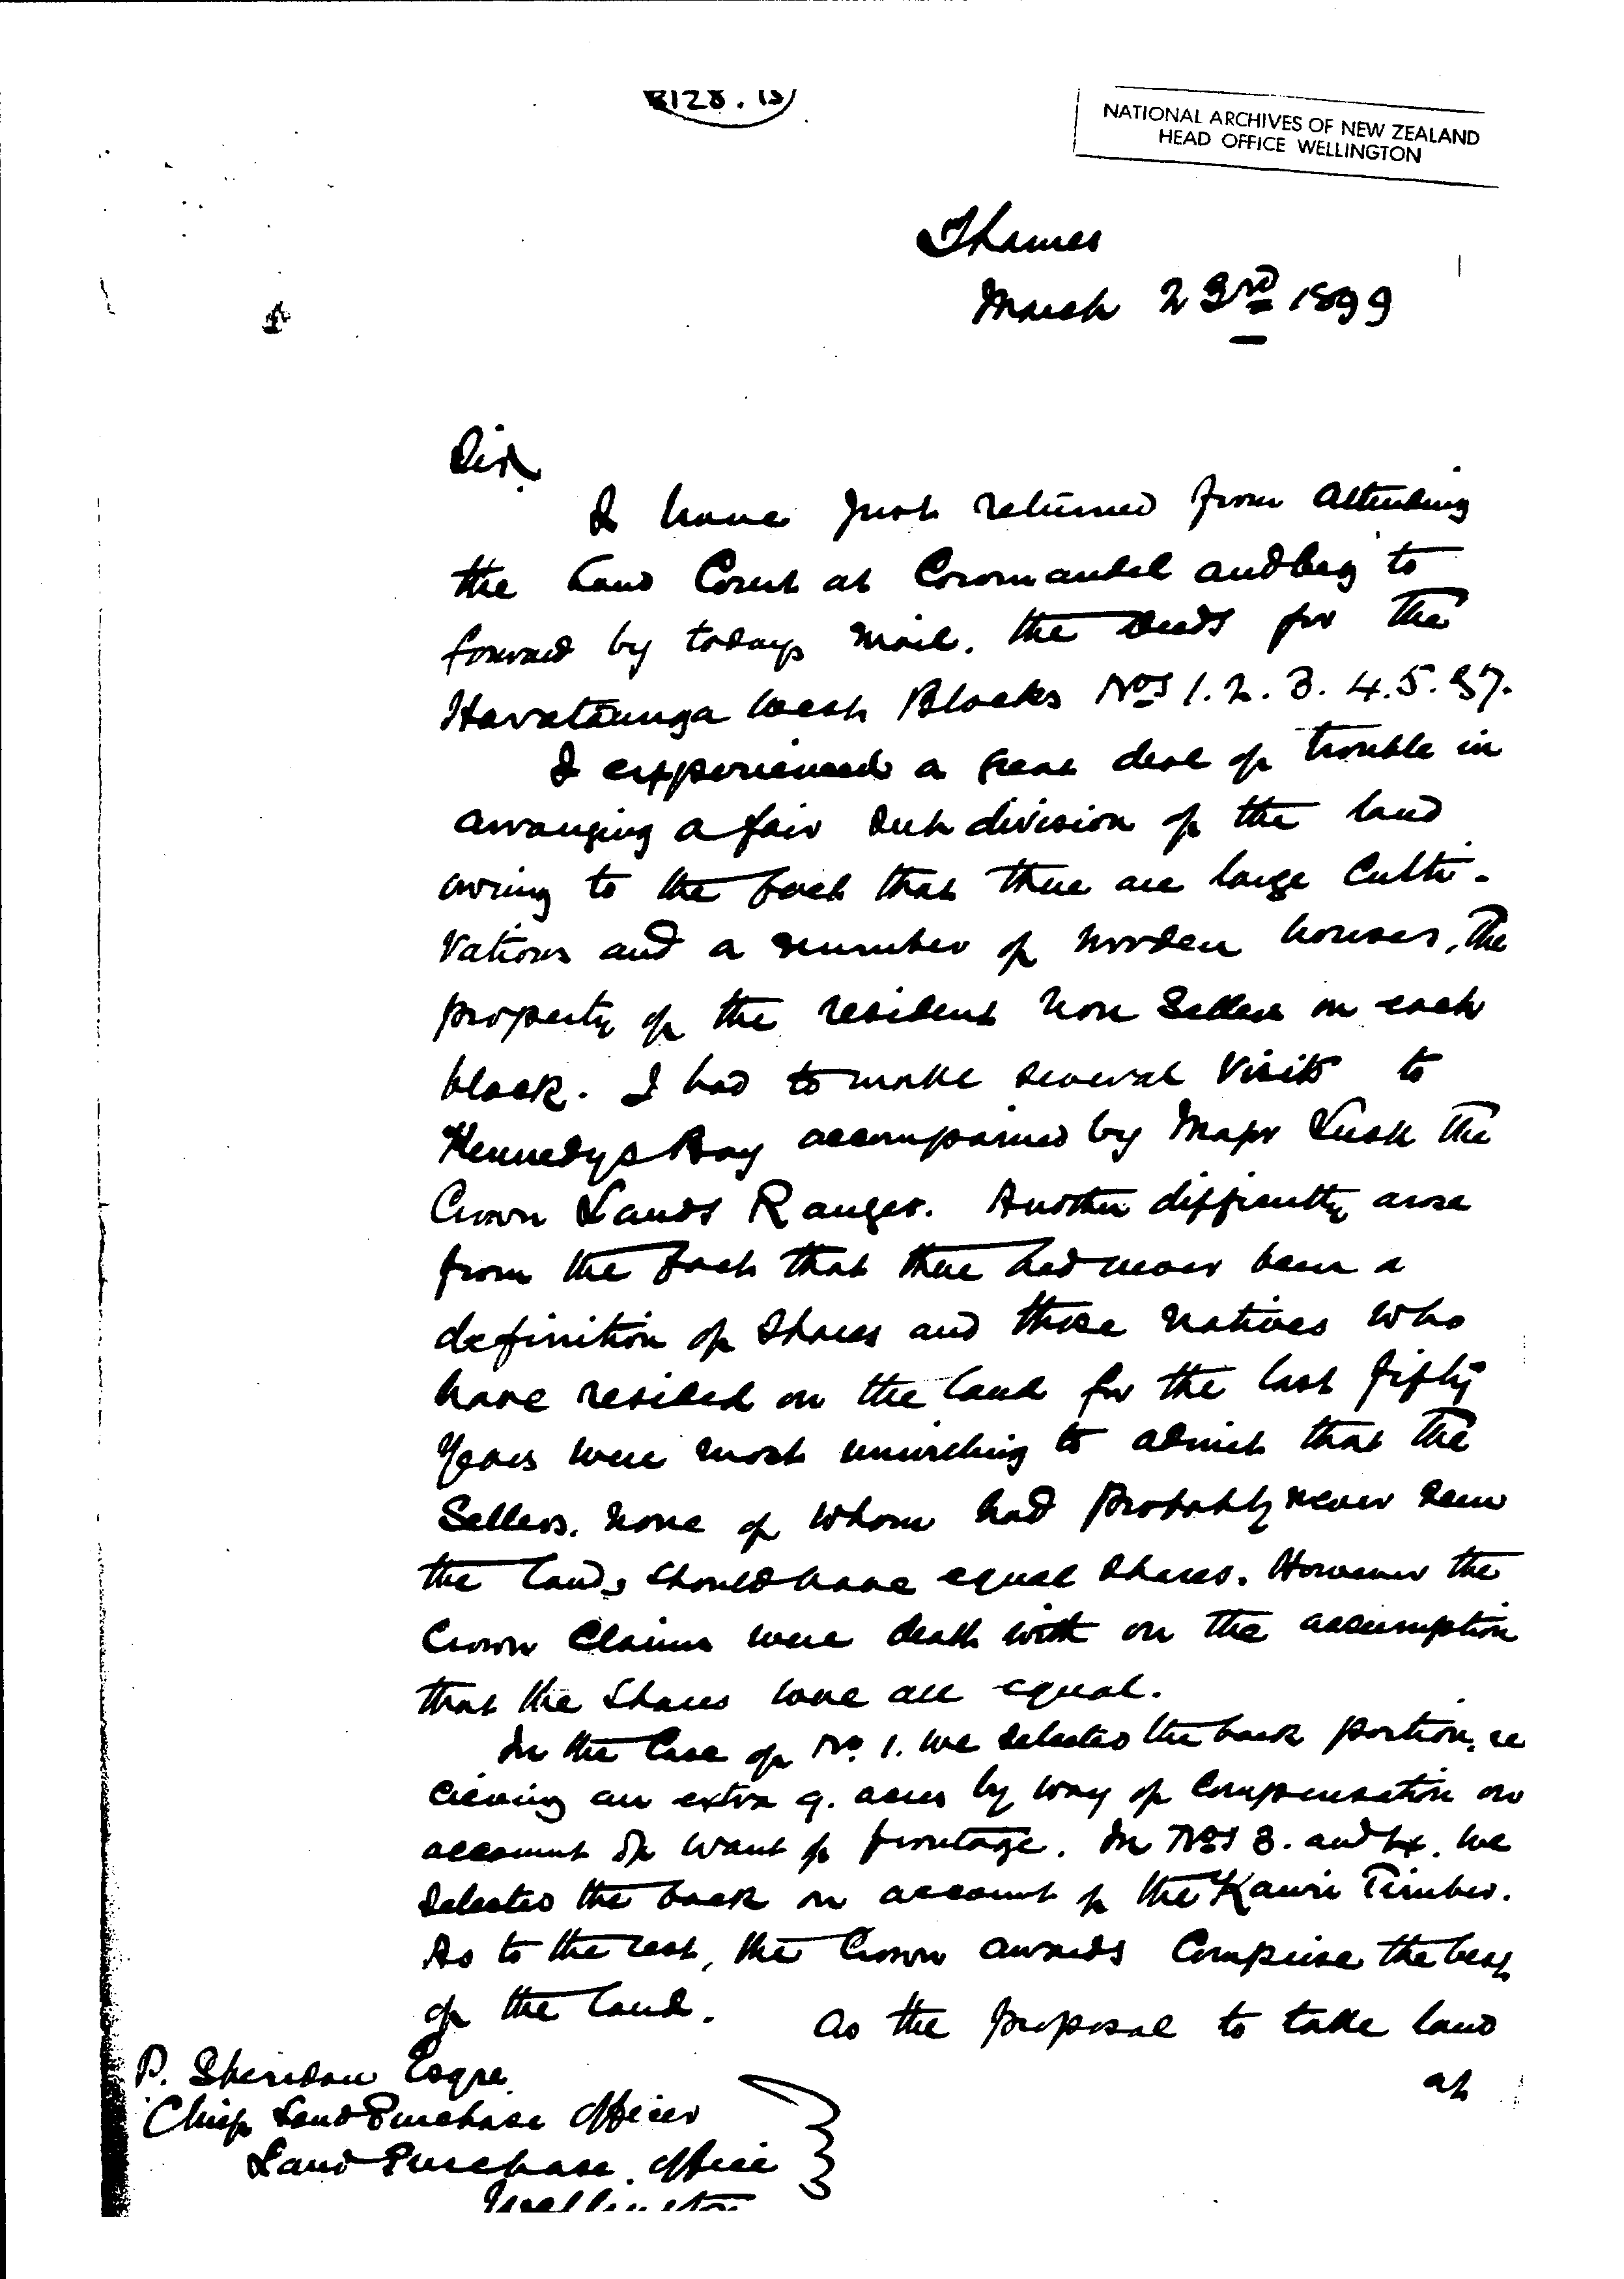 NATIONAL ARCHIVES OF NEW ZEALAND
HEAD OFFICE WELLINGTON
Thames
March 23rd 1899
Sir.
I have just returned from attending
the Land Court at Coromandel and beg to
forward by todays mail. the Deeds for the
Harataunga West Blocks Nos 1. 2. 3. 4. 5. &7.
I experienced a great deal of trouble in
arranging a fair sub division of the land
owing to the fact that there are large Culti-
vations and a number of wooden houses, the
property of the resident non Sellers on each
block. I had to make several visits to
Kennedys Bay accompanied by Major Lusk the
Crown Lands Ranger. Another difficulty arose
from the fact that there had never been a
definition of Shares and those natives who
have resided on the land for the last fifty
years were most unwilling to admit that the
Sellers. none of whom had probably never seen
the land, should have equal shares. However the
Crown Claims were dealt with on the assumption
that the Shares were all equal.
In the Case of No. 1. we selected the back portion, re
cieving an extra 9. acres by way of Compensation on
account of want of frontage. In Nos 3. and 4. we
selected the back on account of the Kauri Timber.
As to the rest, the Crown awards Comprise the best
of the land. As the proposal to take land
at
P. Sheridan Esqre
Chief Land Purchase Officer
Land Purchase Office
Wellington